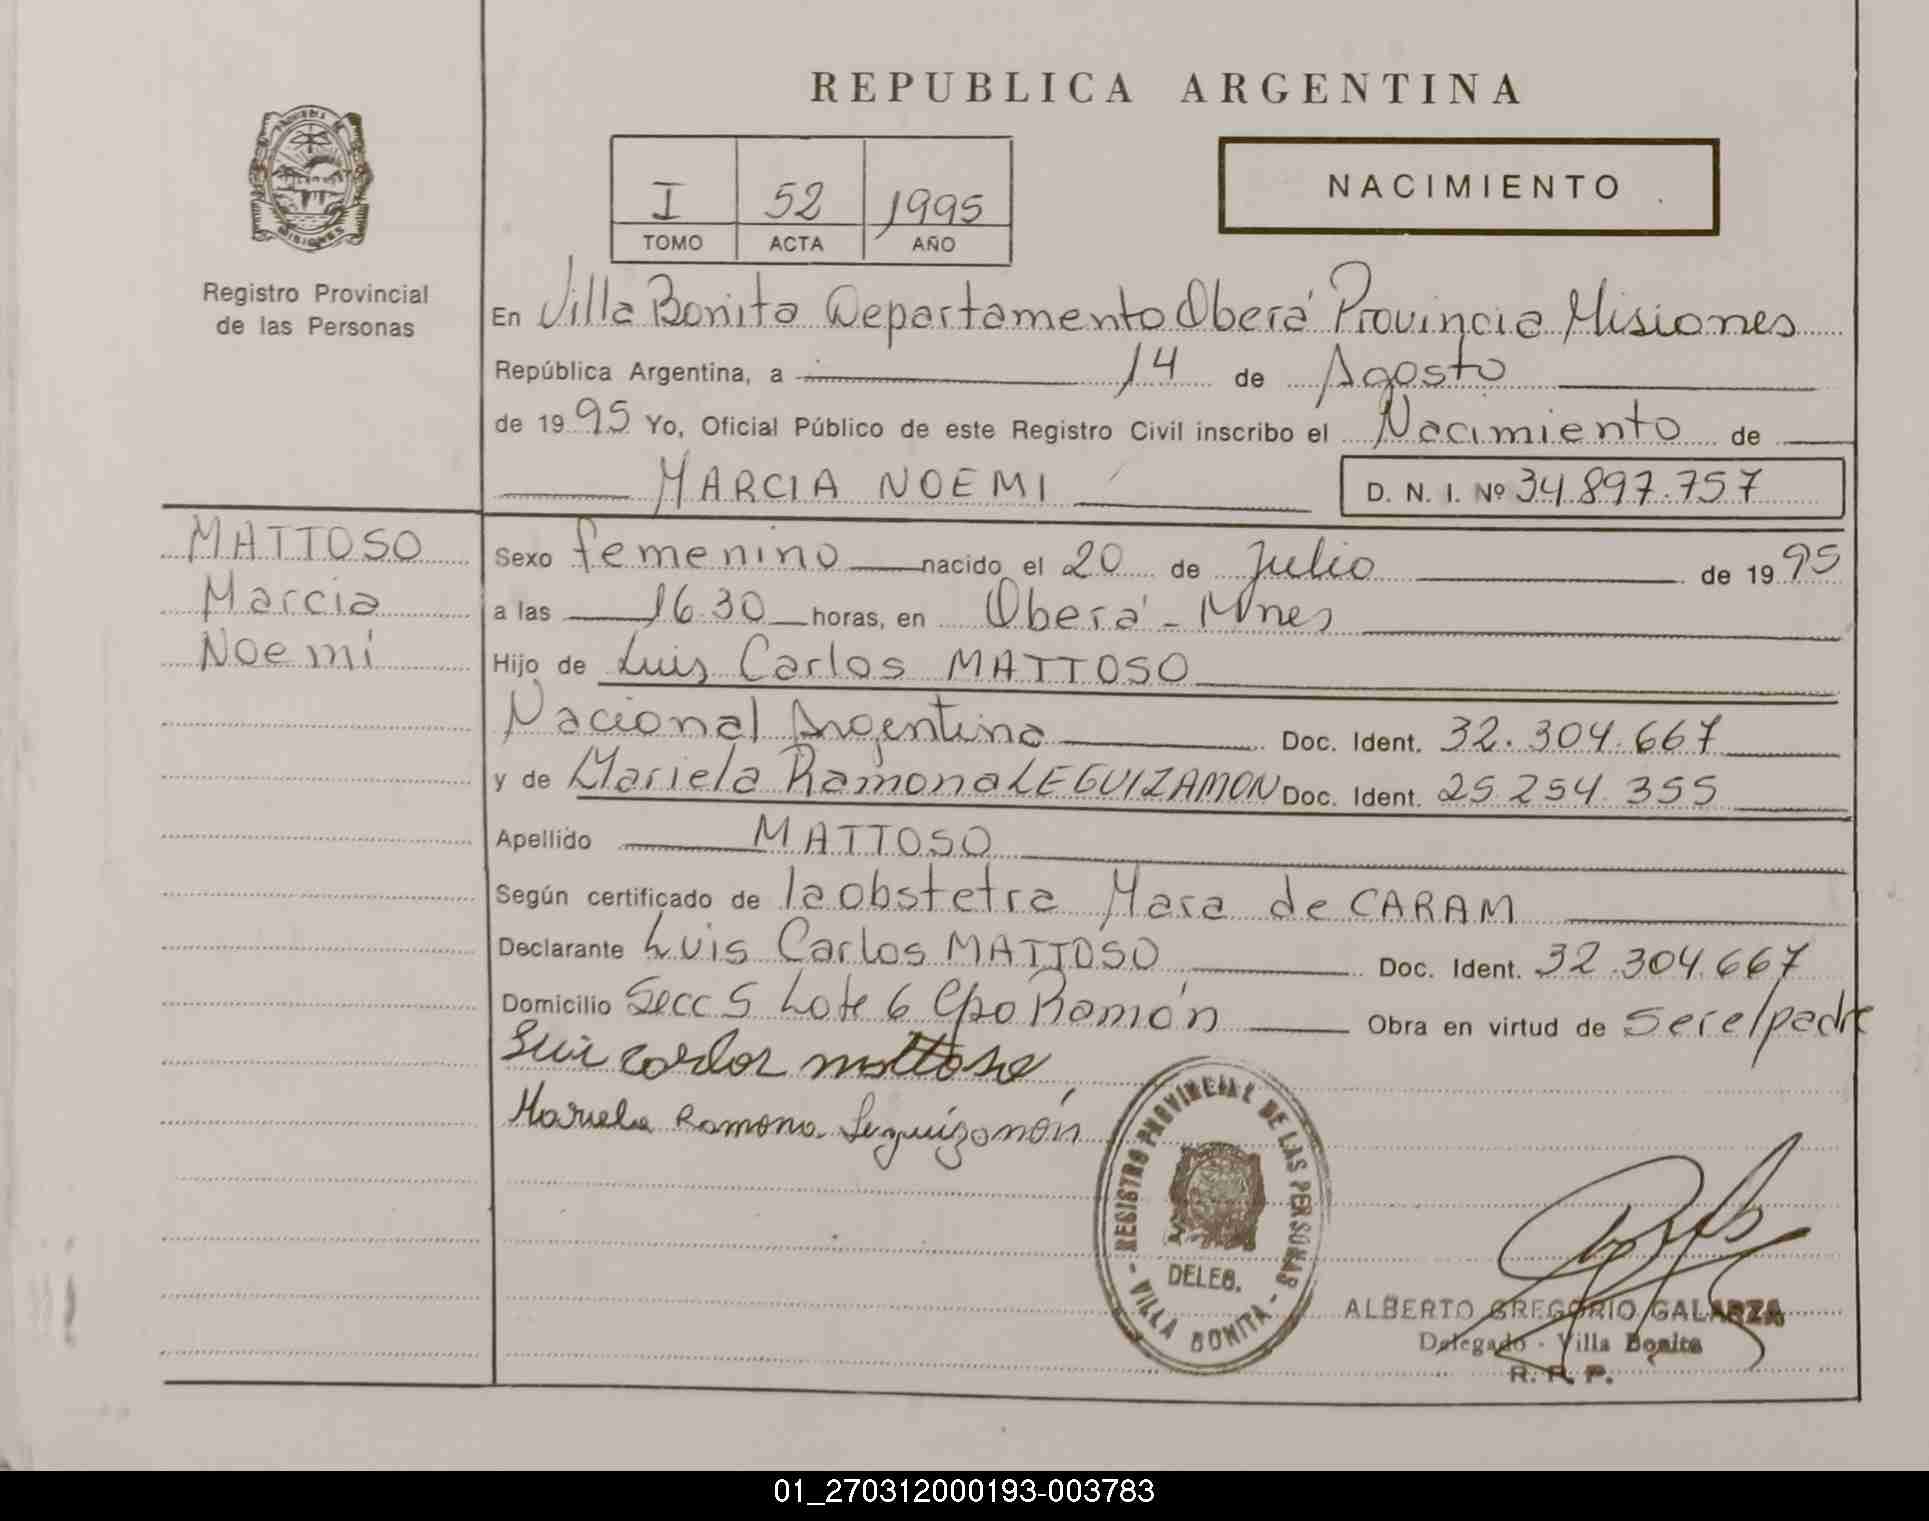 REPUBLICA ARGENTINA
PROVINCIA DE
MISIONES
Registro Provincial
de las Personas
I 52 1995
TOMO ACTA AÑO
NACIMIENTO
En Villa Bonita Departamento Oberá Provincia Misiones
República Argentina, a 14 de Agosto
de 1995 Yo, Oficial Público de este Registro Civil inscribo el Nacimiento de
MARCIA NOEMI D. N. I. Nº 34.897.757
MATTOSO
Marcia
Noemí
Sexo femenino nacido el 20 de Julio de 1995
a las 16.30 horas, en Oberá - Mnes
Hijo de Luis Carlos MATTOSO
Nacional Argentino Doc. Ident. 32.304.667
y de Mariela Ramona LEGUIZAMON Doc. Ident. 25.254.355
Apellido MATTOSO
Según certificado de la obstetra Mara de CARAM
Declarante Luis Carlos MATTOSO Doc. Ident. 32.304.667
Domicilio Secc 5 Lote 6 Cpo Ramón Obra en virtud de ser el padre
Luis carlos mattoso
Mariela Ramona Leguizamón
REGISTRO PROVINCIAL DE LAS PERSONAS
DELEG.
- VILLA BONITA -
ALBERTO GREGORIO GALARZA
Delegado - Villa Bonita
R. P. P.
01_270312000193-003783